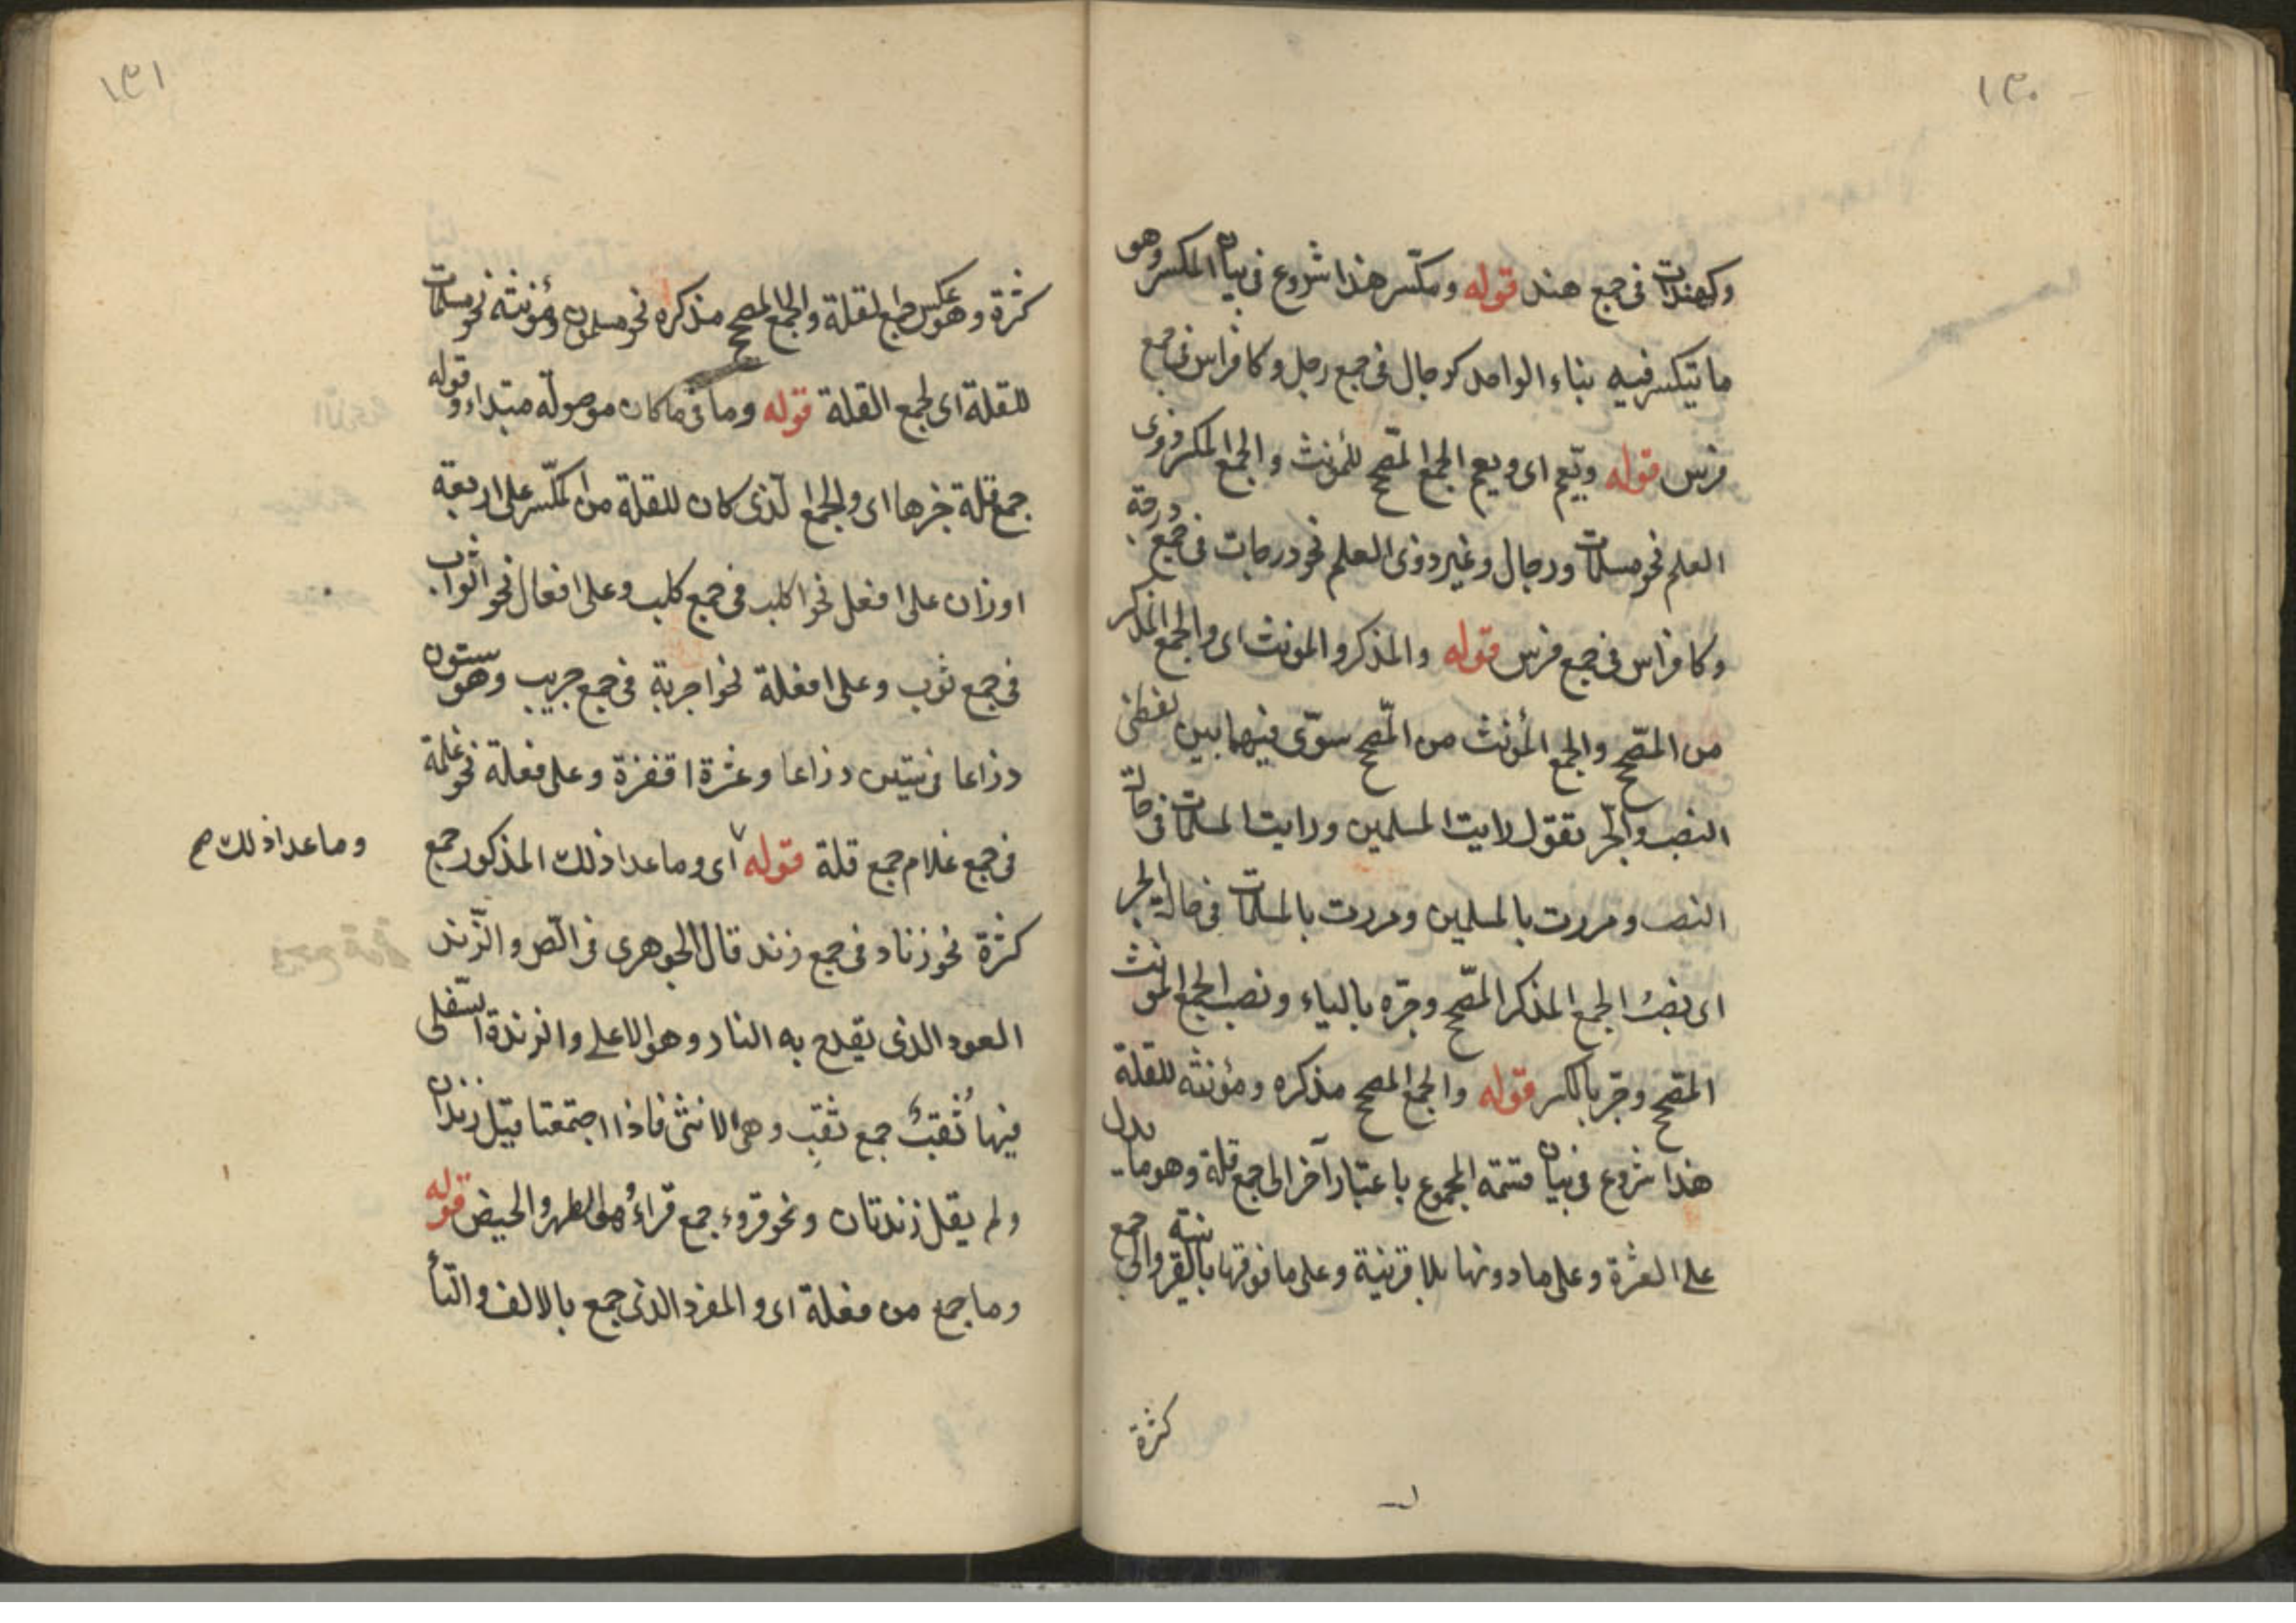 ١٣٠
وكهندات فى جمع هند قوله ومكسّر هذا شروع فى بيان المكسر وهو
ما يتكسر فيه بناء الواحد كرجال فى جمع رجل وكافراس فى جمع
فرس قوله ويعم اى ويعم الجمع المصّحح للمؤنث والجمع المكسر ذوى
العلم نحو مسلمات ورجال وغير ذوى العلم نحو درجات فى جمع درجة
وكافراس فى جمع فرس قوله والمذكر والمونث اى والجمع المذكر
من المصّحح والجمع المؤنث من المصّحح سوّى فيهما بين لفظى
النصب والجّر تقول رايت المسلمين ورايت المسلمات فى حالة
النصب ومررت بالمسلمين ومررت بالمسلمات فى حالة الجر
اى نصبُ الجمع المذكر المصّحح وجرّه بالياء ونصب الجمع المونث
المصّحح وجرّ بالكسر قوله والجمع المصحح مذكره ومؤنثه للقلة
هذا شروع فى بيان قسمة المجموع باعتبار آخر الى جمع قلة وهو ما يدل
على العشرة وعلى ما دونها بلا قرينة وعلى ما فوقها بالقرينة والى جمع
كثرة
١٣١
كثرة وهو عكس جمع القلة والجمع المصحح مذكره نحو مسلمون ومؤنثه نحو مسلمات
للقلة اى لجمع القلة قوله وما فى ما كان موصولة مبتداء وقوله
جمع قلة خبرها اى والجمع الّذى كان للقلة من المكسّر على اربعة
اوزان على افعل نحو اكلب فى جمع كلب وعلى افعال نحو اثواب
فى جمع ثوب وعلى افعلة نحو اجربة فى جمع جريب وهو ستون
ذراعا فى ستين ذراعا وعشرة اقفزة وعلى فعلة نحو غلمة
فى جمع غلام جمع قلة قوله ٧ اى وما عدا ذلك المذكور جمع
وما عدا ذلك صح
كثرة نحو زناد فى جمع زند قال الجوهرى فى الصّ والزّند
العود الذى يقدح به النار وهو الاعلى والزندة السّفلى
فيها ثُقبٌ جمع ثقب وهى الانثى فاذا اجتمعتا قيل زندان
ولم يقل زندتان ونحو قروء جمع قراءُ وهو الطهر والحيض قوله
وما جمع من فعلة اى والمفرد الذى جمع بالالف والتّأ